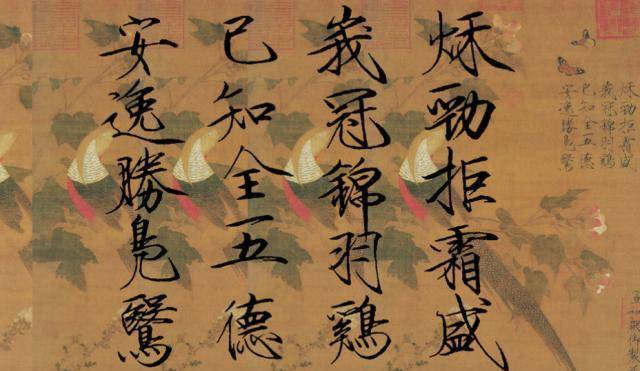 秌勁拒霜盛
峩冠錦羽鷄
已知全五德
安逸勝鳬鷖
秌勁拒霜盛
峩冠錦羽鷄
已知全五德
安逸勝鳬鷖
宣和殿御製